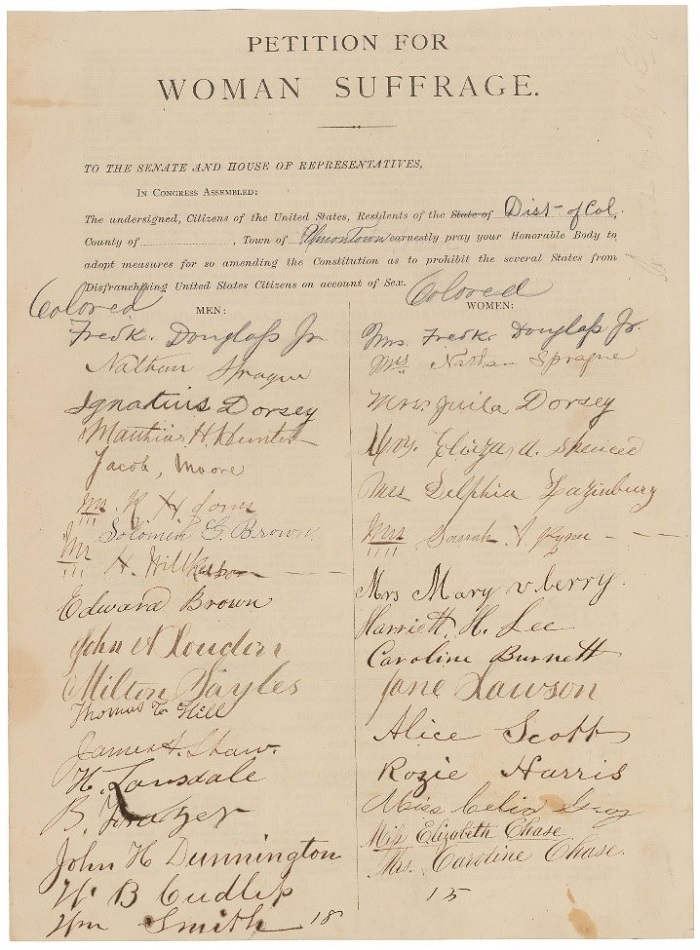 PETITION FOR
WOMAN SUFFRAGE.
TO THE SENATE AND HOUSE OF REPRESENTATIVES,
IN CONGRESS ASSEMBLED:
The undersigned, Citizens of the United States, Residents of the State of Dist- of Col,
County of , Town of earnestly pray your Honorable Body to
adopt measures for so amending the Constitution as to prohibit the several States from
Disfranchising United States Citizens on account of Sex.
Colored
MEN:
Fredk. Douglass Jr
Nathan Sprague
Ignatius Dorsey
Matthias H. Hunter
Jacob, Moore
Mr. R H
Solomin G. Brown
Mr H.
Edward Brown
John A
Milton Sayles
Thomas C Hill
James H. Shaw.
H. Lansdale
B.
John H Dunnington
W. B Cudlip
Wm Smith 18
Colored
WOMEN:
Mrs. Fredk. Douglass Jr.
Mrs Nathan Sprague
Mrs. Dorsey
Mrs. Spencer
Mrs Delphia
Mrs Sarah
Mrs Mary v berry.
Harriett H. Lee
Caroline Burnett
Jane Lawson
Alice Scott
Rozie Harris
Miss Celia Gray
Miss Elizabeth Chase
Mrs. Caroline Chase.
15